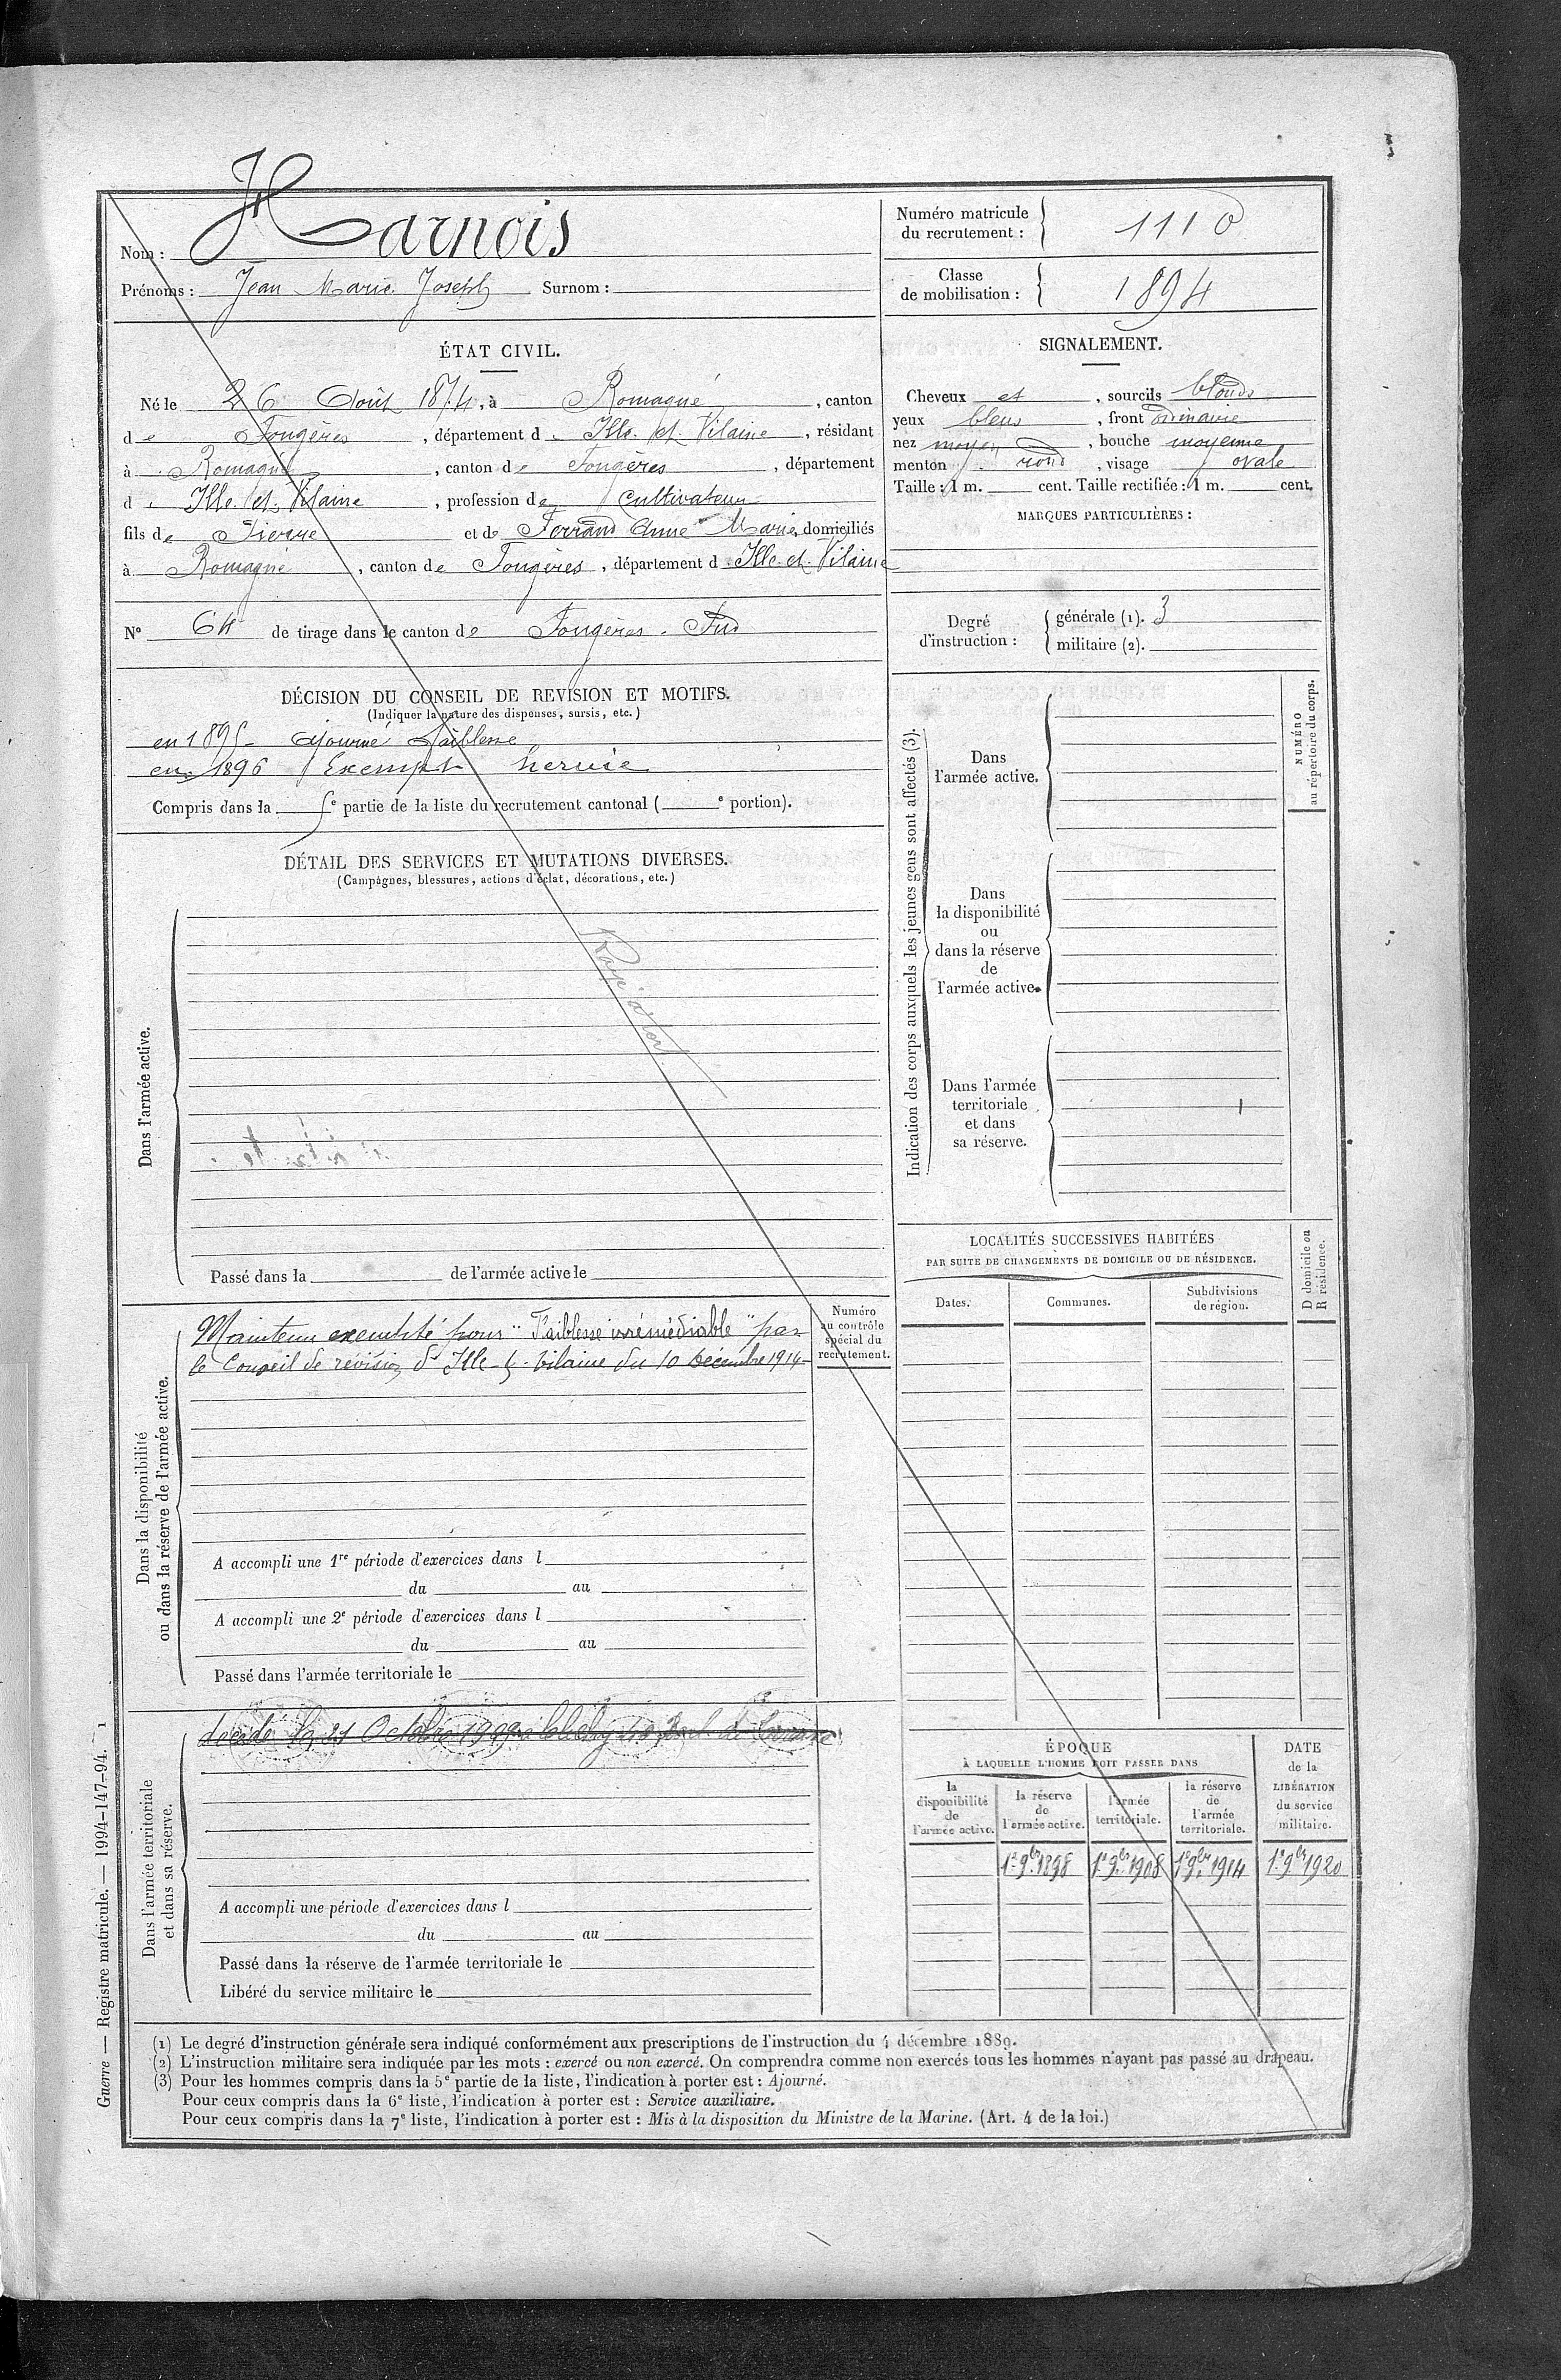 Nom : Harnois
Prénoms : Jean Marie Joseph Surnom :
Numéro matricule du recrutement : 1110
Classe de mobilisation : 1894
ÉTAT CIVIL.
Né le 26 Août 1874, à Romagné, canton
de Fougères, département d Ille et Vilaine, résidant
à Romagné, canton de Fougères, département
d Ille et Vilaine, profession de cultivateur
fils de Pierre et de Ferrand Anne Marie, domiciliés
à Romagné, canton de Fougères, département d Ille et Vilaine
N° 64 de tirage dans le canton de Fougères Sud
SIGNALEMENT.
Cheveux et, sourcils blonds
yeux bleus, front ordinaire
nez moyen, bouche moyenne
menton rond, visage ovale
Taille : 1 m. cent. Taille rectifiée : 1 m. cent.
MARQUES PARTICULIÈRES :
Degré d'instruction :
générale (1). 3
militaire (2).
DÉCISION DU CONSEIL DE REVISION ET MOTIFS.
(Indiquer la nature des dispenses, sursis, etc.)
en 1895 ajourné faiblesse
en 1896 Exempt hernie
Compris dans la 5e partie de la liste du recrutement cantonal ( e portion).
DÉTAIL DES SERVICES ET MUTATIONS DIVERSES.
(Campagnes, blessures, actions d'éclat, décorations, etc.)
Dans l'armée active.
Rayé à tort
Passé dans la de l'armée active le
Indication des corps auxquels les jeunes gens sont affectés (3).
Dans
l'armée active.
Dans
la disponibilité
ou
dans la réserve
de
l'armée active.
Dans l'armée
territoriale
et dans
sa réserve.
NUMÉRO
au répertoire du corps.
Dans la disponibilité
ou dans la réserve de l'armée active.
Maintenu exempté pour "Faiblesse irrémédiable" par
le Conseil de révision d'Ille-&-Vilaine du 10 Décembre 1914
Numéro
au contrôle
spécial du
recrutement.
A accompli une 1re période d'exercices dans l
du au
A accompli une 2e période d'exercices dans l
du au
Passé dans l'armée territoriale le
LOCALITÉS SUCCESSIVES HABITÉES
PAR SUITE DE CHANGEMENTS DE DOMICILE OU DE RÉSIDENCE.
Dates.
Communes.
Subdivisions
de région.
D domicile ou
R résidence.
Dans l'armée territoriale
et dans sa réserve.
décédé le 21 Octobre 1909 à Clichy Boul. de Lorraine
A accompli une période d'exercices dans l
du au
Passé dans la réserve de l'armée territoriale le
Libéré du service militaire le
ÉPOQUE
À LAQUELLE L'HOMME DOIT PASSER DANS
la
disponibilité
de
l'armée active.
la réserve
de
l'armée active.
l'armée
territoriale.
la réserve
de
l'armée
territoriale.
DATE
de la
LIBÉRATION
du service
militaire.
1er 9bre 1898 1er 9bre 1908 1er 9bre 1914 1er 9bre 1920
(1) Le degré d'instruction générale sera indiqué conformément aux prescriptions de l'instruction du 4 décembre 1889.
(2) L'instruction militaire sera indiquée par les mots : exercé ou non exercé. On comprendra comme non exercés tous les hommes n'ayant pas passé au drapeau.
(3) Pour les hommes compris dans la 5e partie de la liste, l'indication à porter est : Ajourné.
Pour ceux compris dans la 6e liste, l'indication à porter est : Service auxiliaire.
Pour ceux compris dans la 7e liste, l'indication à porter est : Mis à la disposition du Ministre de la Marine. (Art. 4 de la loi.)
Guerre — Registre matricule. — 1994-147-94. 1